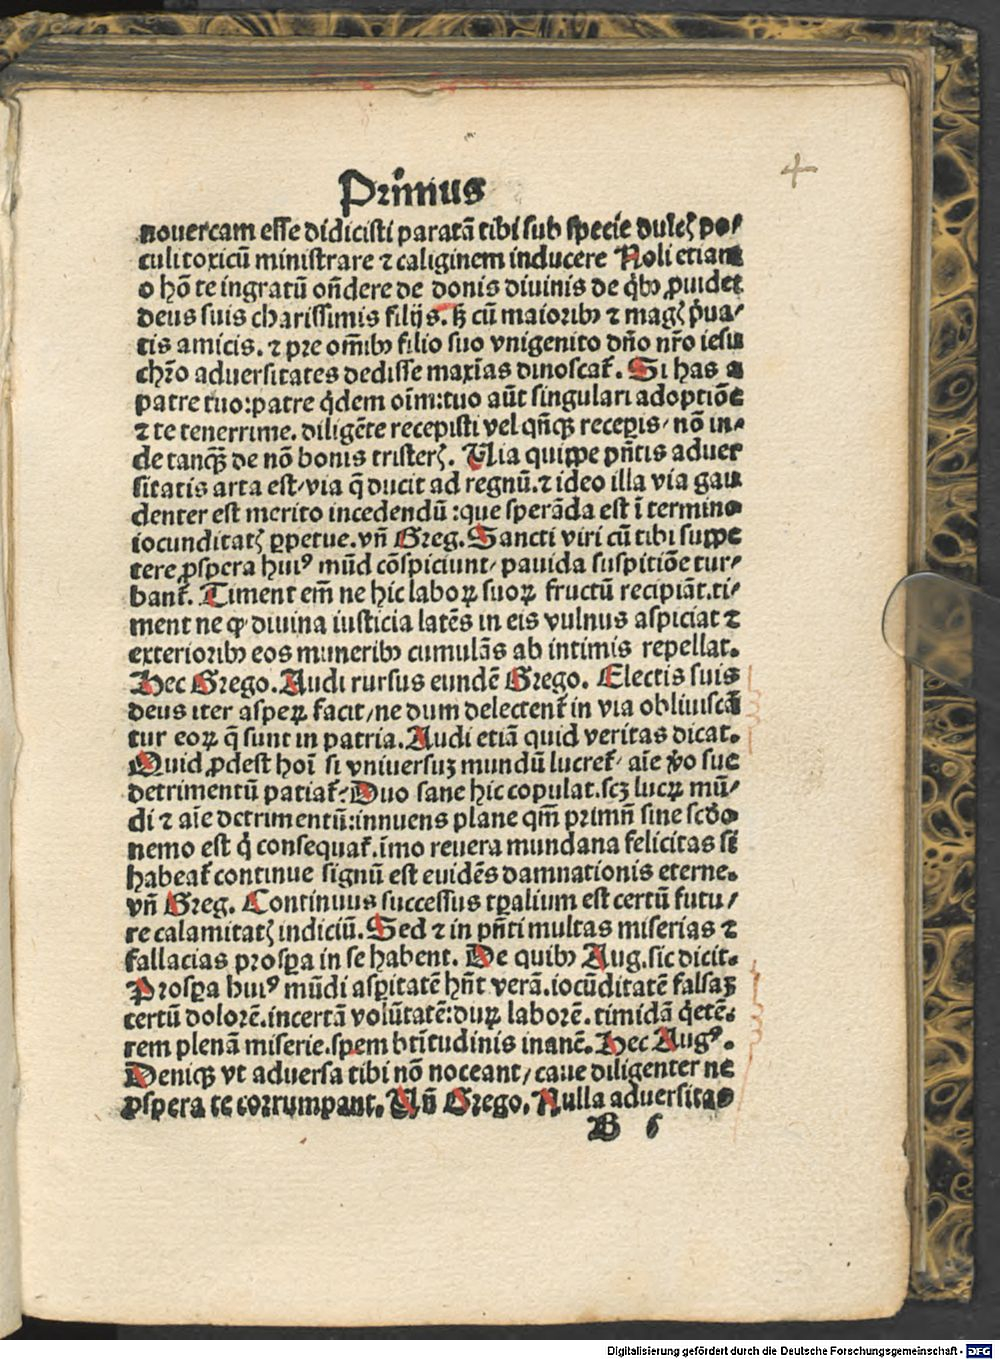 4
Primus
nouercam esse didicisti paratā tibi sub specie dulcꝭ po⸗
culi toxicū ministrare ⁊ caliginem inducere Noli etiam
o hō te ingratū oñdere de donis diuinis de q̇bꝰ ꝓuidet
deus suis charissimis filijs. hꝫ cū maioribꝰ ⁊ magꝭ p̉ua⸗
tis amicis. ⁊ pre om̄ibꝰ filio suo vnigenito dño nr̄o iesu
chr̄o aduersitates dedisse maxīas dinoscat̉. Si has a
patre tuo:patre q̇dem oīm:tuo aūt singulari adoptiōe
⁊ te tenerrime. diligēte recepisti vel qñcꝗ recepis/ nō in⸗
de tancꝗ̄ de nō bonis tristerꝭ. Uia quippe pñtis aduer
sitatis arta est/via q̄ ducit ad regnū.⁊ ideo illa via gau
denter est merito incedendū:que sperāda est ī termino
iocunditatꝭ ꝑpetue.vñ Greg. Sancti viri cū tibi suppe
tere ꝓspera huiꝰ mūd cōspiciunt/ pauida suspitiōe tur⸗
bant̉. Timent em̄ ne hic laboꝝ suoꝝ fructū recipiāt.ti⸗
ment ne ꝙ diuina iusticia latēs in eis vulnus aspiciat ⁊
exterioribꝰ eos muneribꝰ cumulās ab intimis repellat.
Hec Grego. Audi rursus eundē Grego. Electis suis
deus iter aspeꝝ facit/ne dum delectent̉ in via obliuiscā
tur eoꝝ q̄ sunt in patria. Audi etiā quid veritas dicat.
Quid ꝓdest hoī si vniuersuꝫ mundū lucret̉ aīe v̉o sue
detrimentū patiat̉? Duo sane hic copulat.scꝫ lucꝝ mū⸗
di ⁊ aīe detrimentū:innuens plane qm̄ primū sine scdo
nemo est q̇ consequat̉.īmo reuera mundana felicitas si
habeat̉ continue signū est euidēs damnationis eterne.
vñ Greg. Continuus successus tꝑalium est certū futu⸗
re calamitatꝭ indiciū. Sed ⁊ in pñti multas miserias ⁊
fallacias prospa in se habent. De quibꝰ Aug.sic dicit.
Prospa huiꝰ mūdi asꝑitatē hñt verā.iocūditatē falsaꝫ
certū dolorē.incertā volūtatē:duꝝ laborē.timidā q̇etē.
rem plenā miserie.spem btītudinis inanē. Hec Augꝰ.
Denicꝗ vt aduersa tibi nō noceant/caue diligenter ne
ꝓspera te corrumpant. Uñ Grego. Nulla aduersitas
B 6
Digitalisierung gefördert durch die Deutsche Forschungsgemeinschaft - DFG